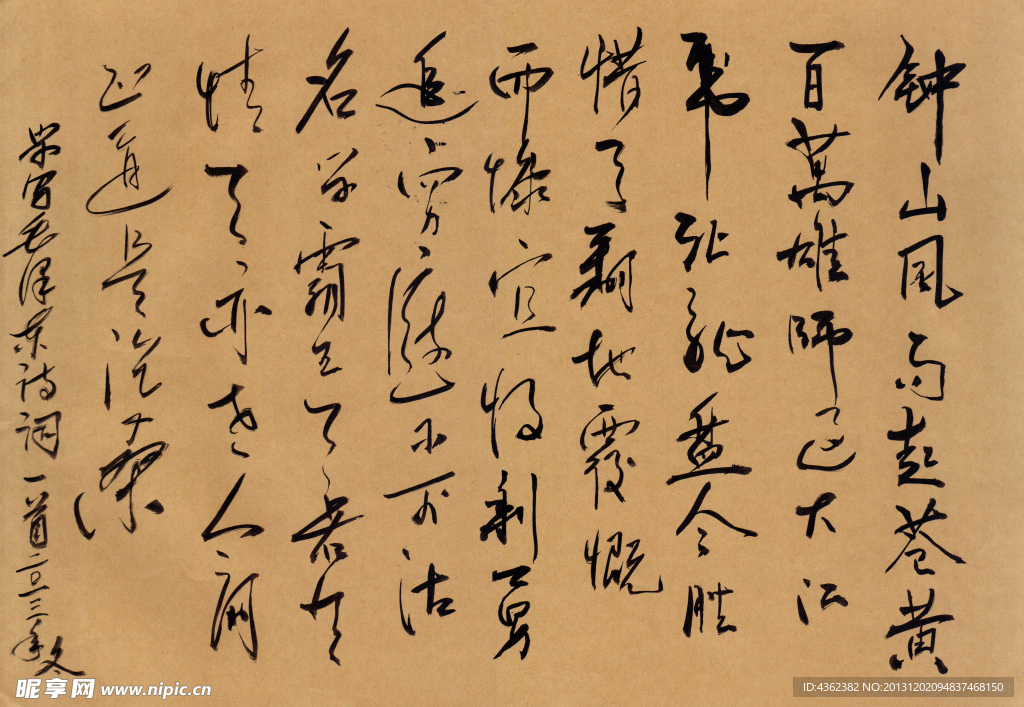 钟山风雨起苍黄
百萬雄师过大江
虎踞龙盘今胜
惜天翻地覆慨
而慷宜将剩勇
追穷寇不可沽
名学霸王天若有
情天亦老人间
正道是沧桑
写毛泽东诗词一首二〇一三年冬
昵享网 www.nipic.cn
ID:4362382 NO:20131202094837468150